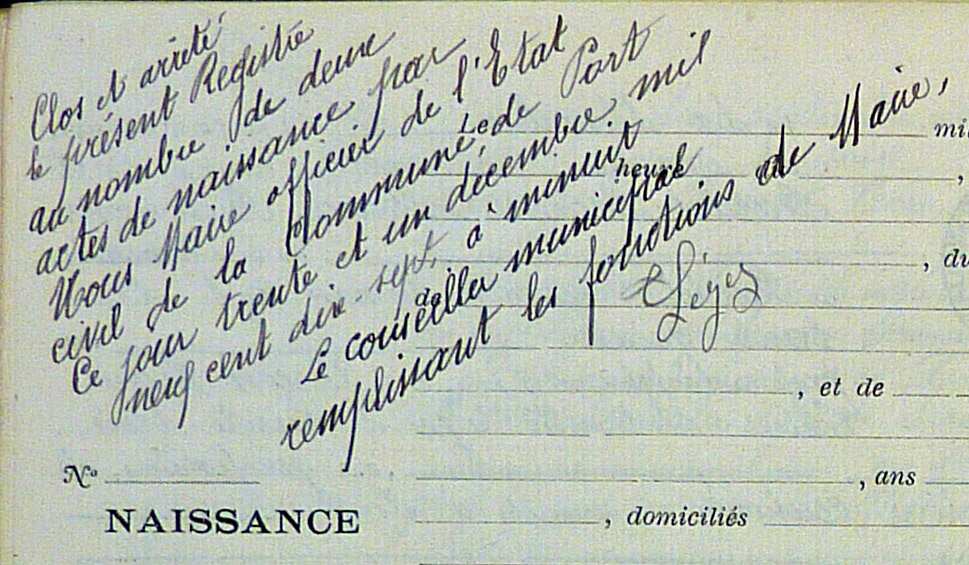 Clos et arrêté
le présent Registre
au nombre de deux
actes de naissance par
Nous Maire officier de l'Etat
civil de la Commune, de Port
Ce jour trente et un décembre mil
neuf cent dix-sept, à minuit
Le conseiller municipal
remplissant les fonctions de Maire,
Le
mil
heure
,
, du
de
, et de
N°
, ans
NAISSANCE
, domiciliés